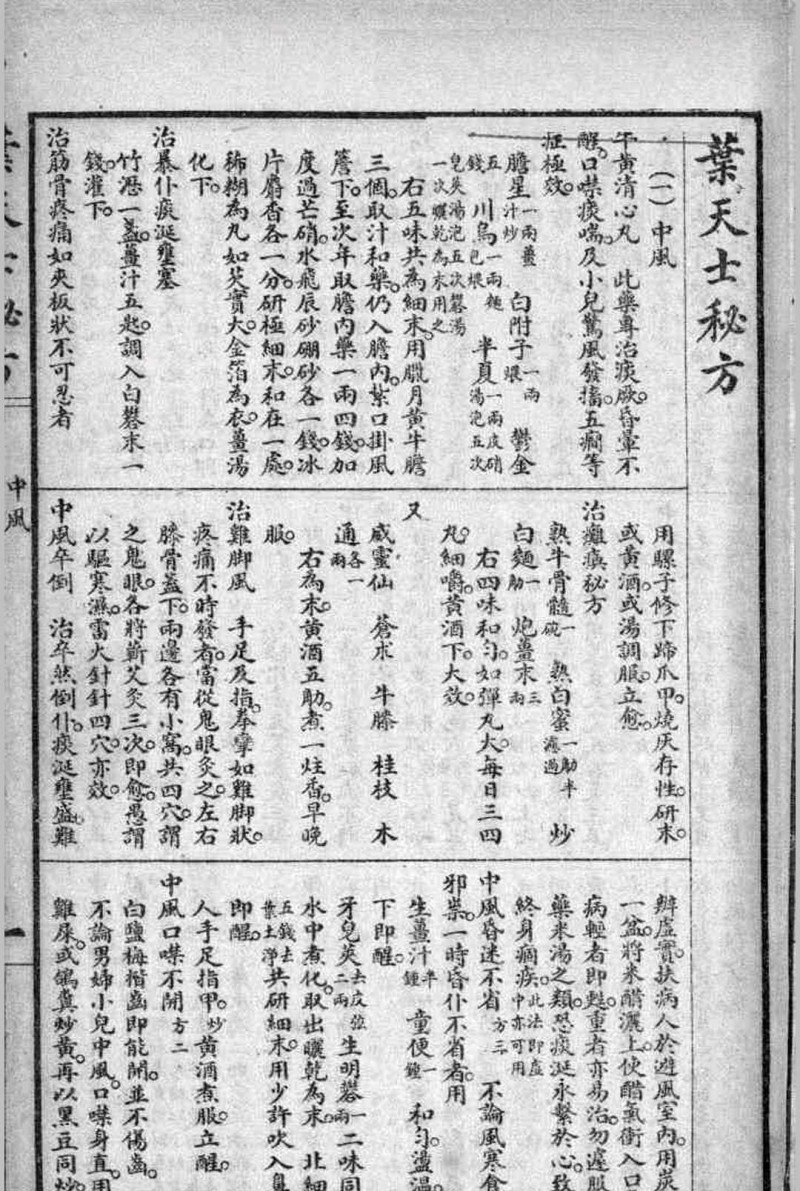 葉天士秘方
(一)中風
牛黃清心丸 此藥專治痰厥昏暈不
醒口噤痰喘及小兒驚風發搐五癇等
症極效
膽星一兩薑汁炒 白附子一兩煨 鬱金
五錢 川烏一兩麵包煨 半夏一兩皮硝湯泡五次
皂莢湯泡五次礬湯一次曬乾為末用之
右五味共為細末用臘月黃牛膽
三個取汁和藥仍入膽內紮口掛風
簷下至次年取膽內藥一兩四錢加
度過芒硝水飛辰砂硼砂各一錢冰
片麝香各一分研極細末和在一處
稀糊為丸如芡實大金箔為衣薑湯
化下
治暴仆痰涎壅塞
竹瀝一盞薑汁五匙調入白礬末一
錢灌下
治筋骨疼痛如夾板狀不可忍者
用騾子修下蹄爪甲燒灰存性研末
或黃酒或湯調服立愈
治癱瘓秘方
熟牛骨髓一碗 熟白蜜一觔半濾過 炒
白麵一觔 炮薑末三兩
右四味和勻如彈丸大每日三四
丸細嚼黃酒下大效
又
威靈仙 蒼朮 牛膝 桂枝 木
通各一兩
右為末黃酒五觔煮一炷香早晚
服
治雞脚風 手足及指拳攣如雞脚狀
疼痛不時發者當從鬼眼灸之左右
膝骨蓋下兩邊各有小窩共四穴謂
之鬼眼各將蘄艾灸三次即愈愚謂
以驅寒濕雷火針針四穴亦效
中風卒倒 治卒然倒仆痰涎壅盛難
辦虛實扶病人於避風室內用炭
一盆將米醋灑上使醋氣衝入口
病輕者即甦重者亦易治勿遽服
藥米湯之類恐痰涎永繫於心致
終身痼疾此法即虛中亦可用
中風昏迷不省方三 不論風寒食
邪祟一時昏仆不省者用
生薑汁半鍾 童便一鍾 和勻盪温
下即醒
牙皂莢去皮弦二兩 生明礬一兩 二味同
水中煮化取出曬乾為末 北細
五錢去葉土淨 共研細末用少許吹入鼻
即醒
人手足指甲炒黃酒煮服立醒
中風口噤不開方二
白鹽梅揩齒即能開並不傷齒
不論男婦小兒中風口噤身直用
雞屎或鴿糞炒黃再以黑豆同炒
中風
一